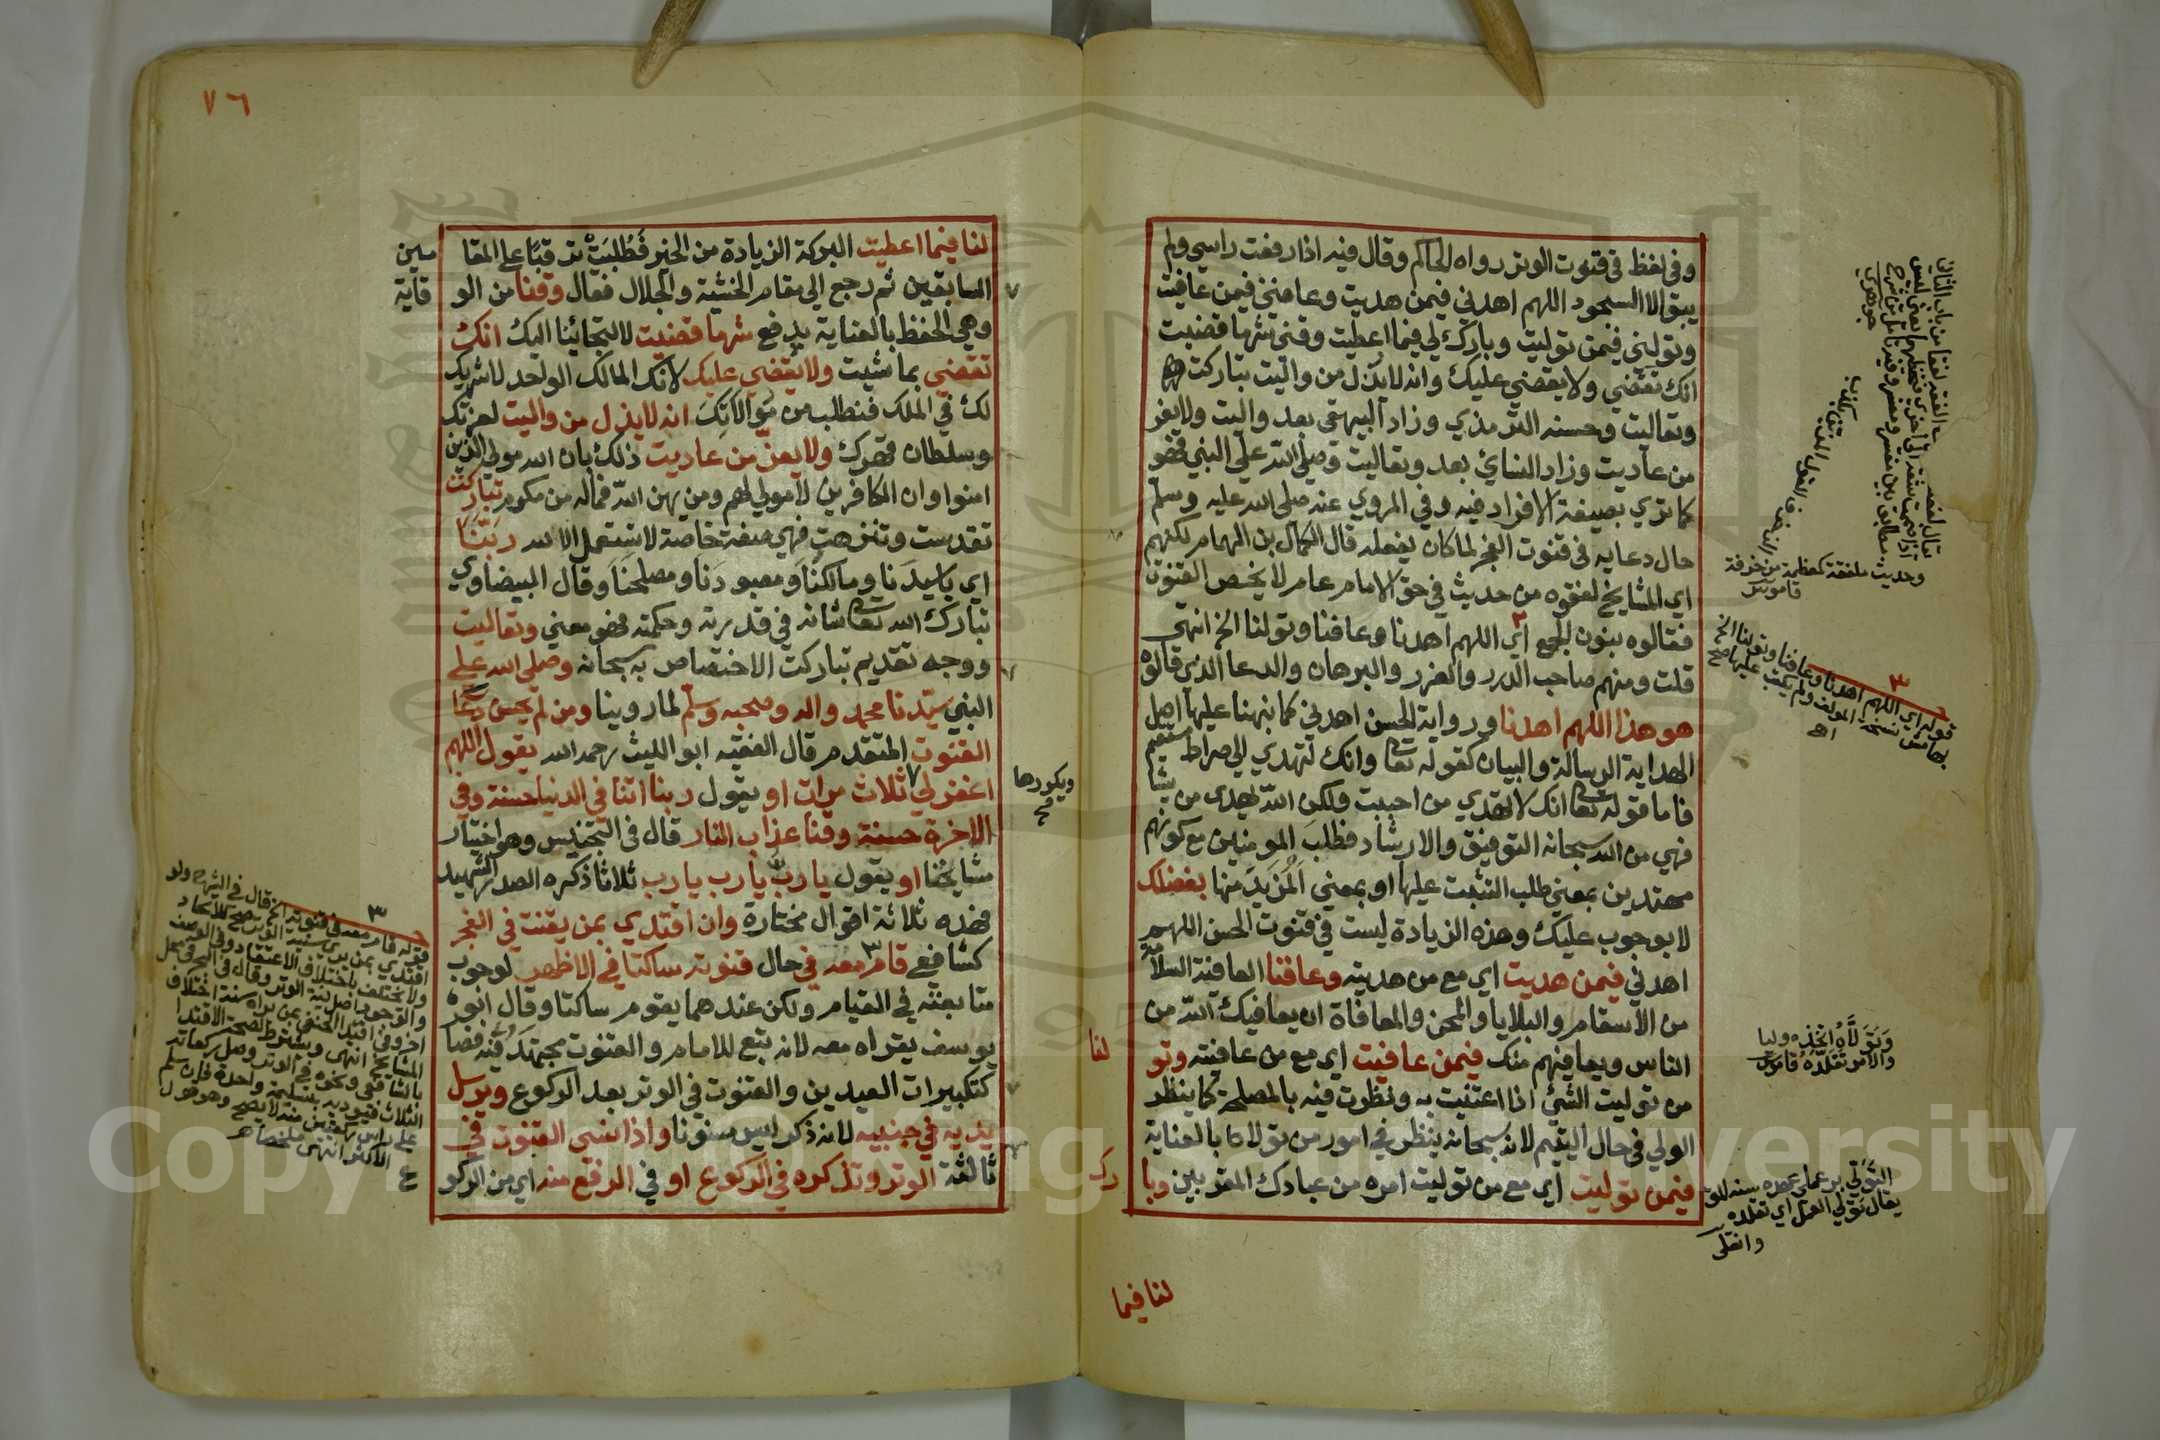 وفي لفظ في قنوت الوتر رواه الحاكم وقال فيه اذا رفعت راسي ولم
يبق الا السجود اللهم اهدني فيمن هديت وعافني فيمن عافيت
وتولني فيمن توليت وبارك لي فيما اعطيت وقني شر ما قضيت
انك تقضي ولا يقضي عليك وانه لا يذل من واليت تباركت
وتعاليت وحسنه الترمذي وزاد البيهقي بعد واليت ولا يعز
من عاديت وزاد النسائ بعد وتعاليت وصلي الله علي النبي فهو
كما تري بصيغة الافراد فيه وفي المروي عنه صلي الله عليه وسلم
حال دعايه في قنوت الفجر لما كان يفعله قال الكمال بن الهمام لكنهم
اي المشايخ لفقوه من حديث في حق الامام عام لا يخص القنوت
فقالوه بنون الجمع اي اللهم اهدنا وعافنا وتولنا الخ انتهي
قلت ومنهم صاحب الدرر والغرر والبرهان والدعا الذي قالوه
هو هذا اللهم اهدنا ورواية الحسن اهدني كما نبهنا عليها اصل
الهداية الرسالة والبيان كقوله تعا وانك لتهدي الي صراط مستقيم
فاما قوله تعا انك لا تهدي من احببت ولكن الله يهدى من يشا
فهي من الله سبحانه التوفيق والارشاد فطلب المومنين مع كونهم
مهتدين بمعني طلب التثبت عليها او بمعني المزيد منها بفضلك
لا بوجوب عليك وهذه الزيادة ليست في قنوت الحسن اللهم
اهدني فيمن هديت اي مع من هديته وعافنا العافية السلامة
من الاسقام والبلايا والمحن والمعافاة ان يعافيك الله من
الناس ويعافيهم منك فيمن عافيت اي مع من عافيته وتو
لنا
من توليت الشئ اذا اعتنيت به ونظرت فيه بالمصلحة كما ينظر
الولي في حال اليتيم لانه سبحانه ينظر في امور من تولاه بالعناية
فيمن توليت اي مع من توليت امره من عبادك المقربين وبا
رك
لنا فيما
وحديث ملفقة كعظمة من خرفة
قاموس
٣
قوله اي اللهم اهدنا وعافنا وتولنا الخ
بهامش نسخة المولف ولم يكتب عليها صح
اه
وتولاه اتخذه وليا
والامر تقلده قاموس
يقال تولي العمل اي تقلده
٧٦
لنا فيما اعطيت البركة الزيادة من الخير فطلبت ترقبا علي المقا
مين
السابقين ثم رجع الي مقام الخشية والجلال فقال وقنا من الو
قاية
وهي الحفظ بالعناية يدفع شر ما قضيت لالتجائنا اليك انك
تقضي بما شيت ولا يقضي عليك لانك المالك الواحد لا شريك
لك في الملك فنطلب من موالاتك انه لا يذل من واليت لعزتك
وسلطان قهرك ولا يعز من عاديت ذلك بان الله مولي الذين
امنوا وان الكافرين لا مولي لهم ومن يهن الله فماله من مكرم تباركت
تقدست وتنزهت فهي صفة خاصة لا تستعمل الا لله ربنا
اي يا سيدنا ومالكنا ومعبودنا ومصلحنا وقال البيضاوي
تبارك الله تعا شانه في قدرته وحكمته فهو معني وتعاليت
ووجه تقديم تباركت الاختصاص به سبحانه وصلي الله علي
النبي سيدنا محمد واله وصحبه وسلم لما روينا ومن لم يحسن دعا
القنوت المتقدم قال الفقيه ابو الليث رحمه الله يقول اللهم
اغفر لي ثلاث مرات او يقول ربنا اتنا في الدنيا حسنة وفي
ويكررها
الاخرة حسنة وقنا عذاب النار قال في التجنيس وهو اختيار
مشايخنا او يقول يا رب يا رب يا رب ثلاثا ذكره الصدر الشهيد
فهذه ثلاثة اقوال مختارة وان اقتدي بمن يقنت في الفجر
كشافعي قام ٣ معه في حال قنوته ساكتا في الاظهر لوجوب
متابعته في القيام ولكن عندهما يقوم ساكتا وقال ابو
يوسف يقراه معه لانه تبع للامام والقنوت مجتهد فيه فصا
كتكبيرات العيدين والقنوت في الوتر بعد الركوع ويرسل
يديه في جنبيه لانه ذكر ليس مسنونا واذا نسي القنوت في
ثالثة الوتر وتذكره في الركوع او في الرفع منه اي من الركو
ع
٣
قوله قام معه في قنوته الخ قال في الشرح ولو
المشايخ انتهي ويشترط لصحة الاقتدا
الاكثر انتهي ملخصا
Copyright © King Saud University